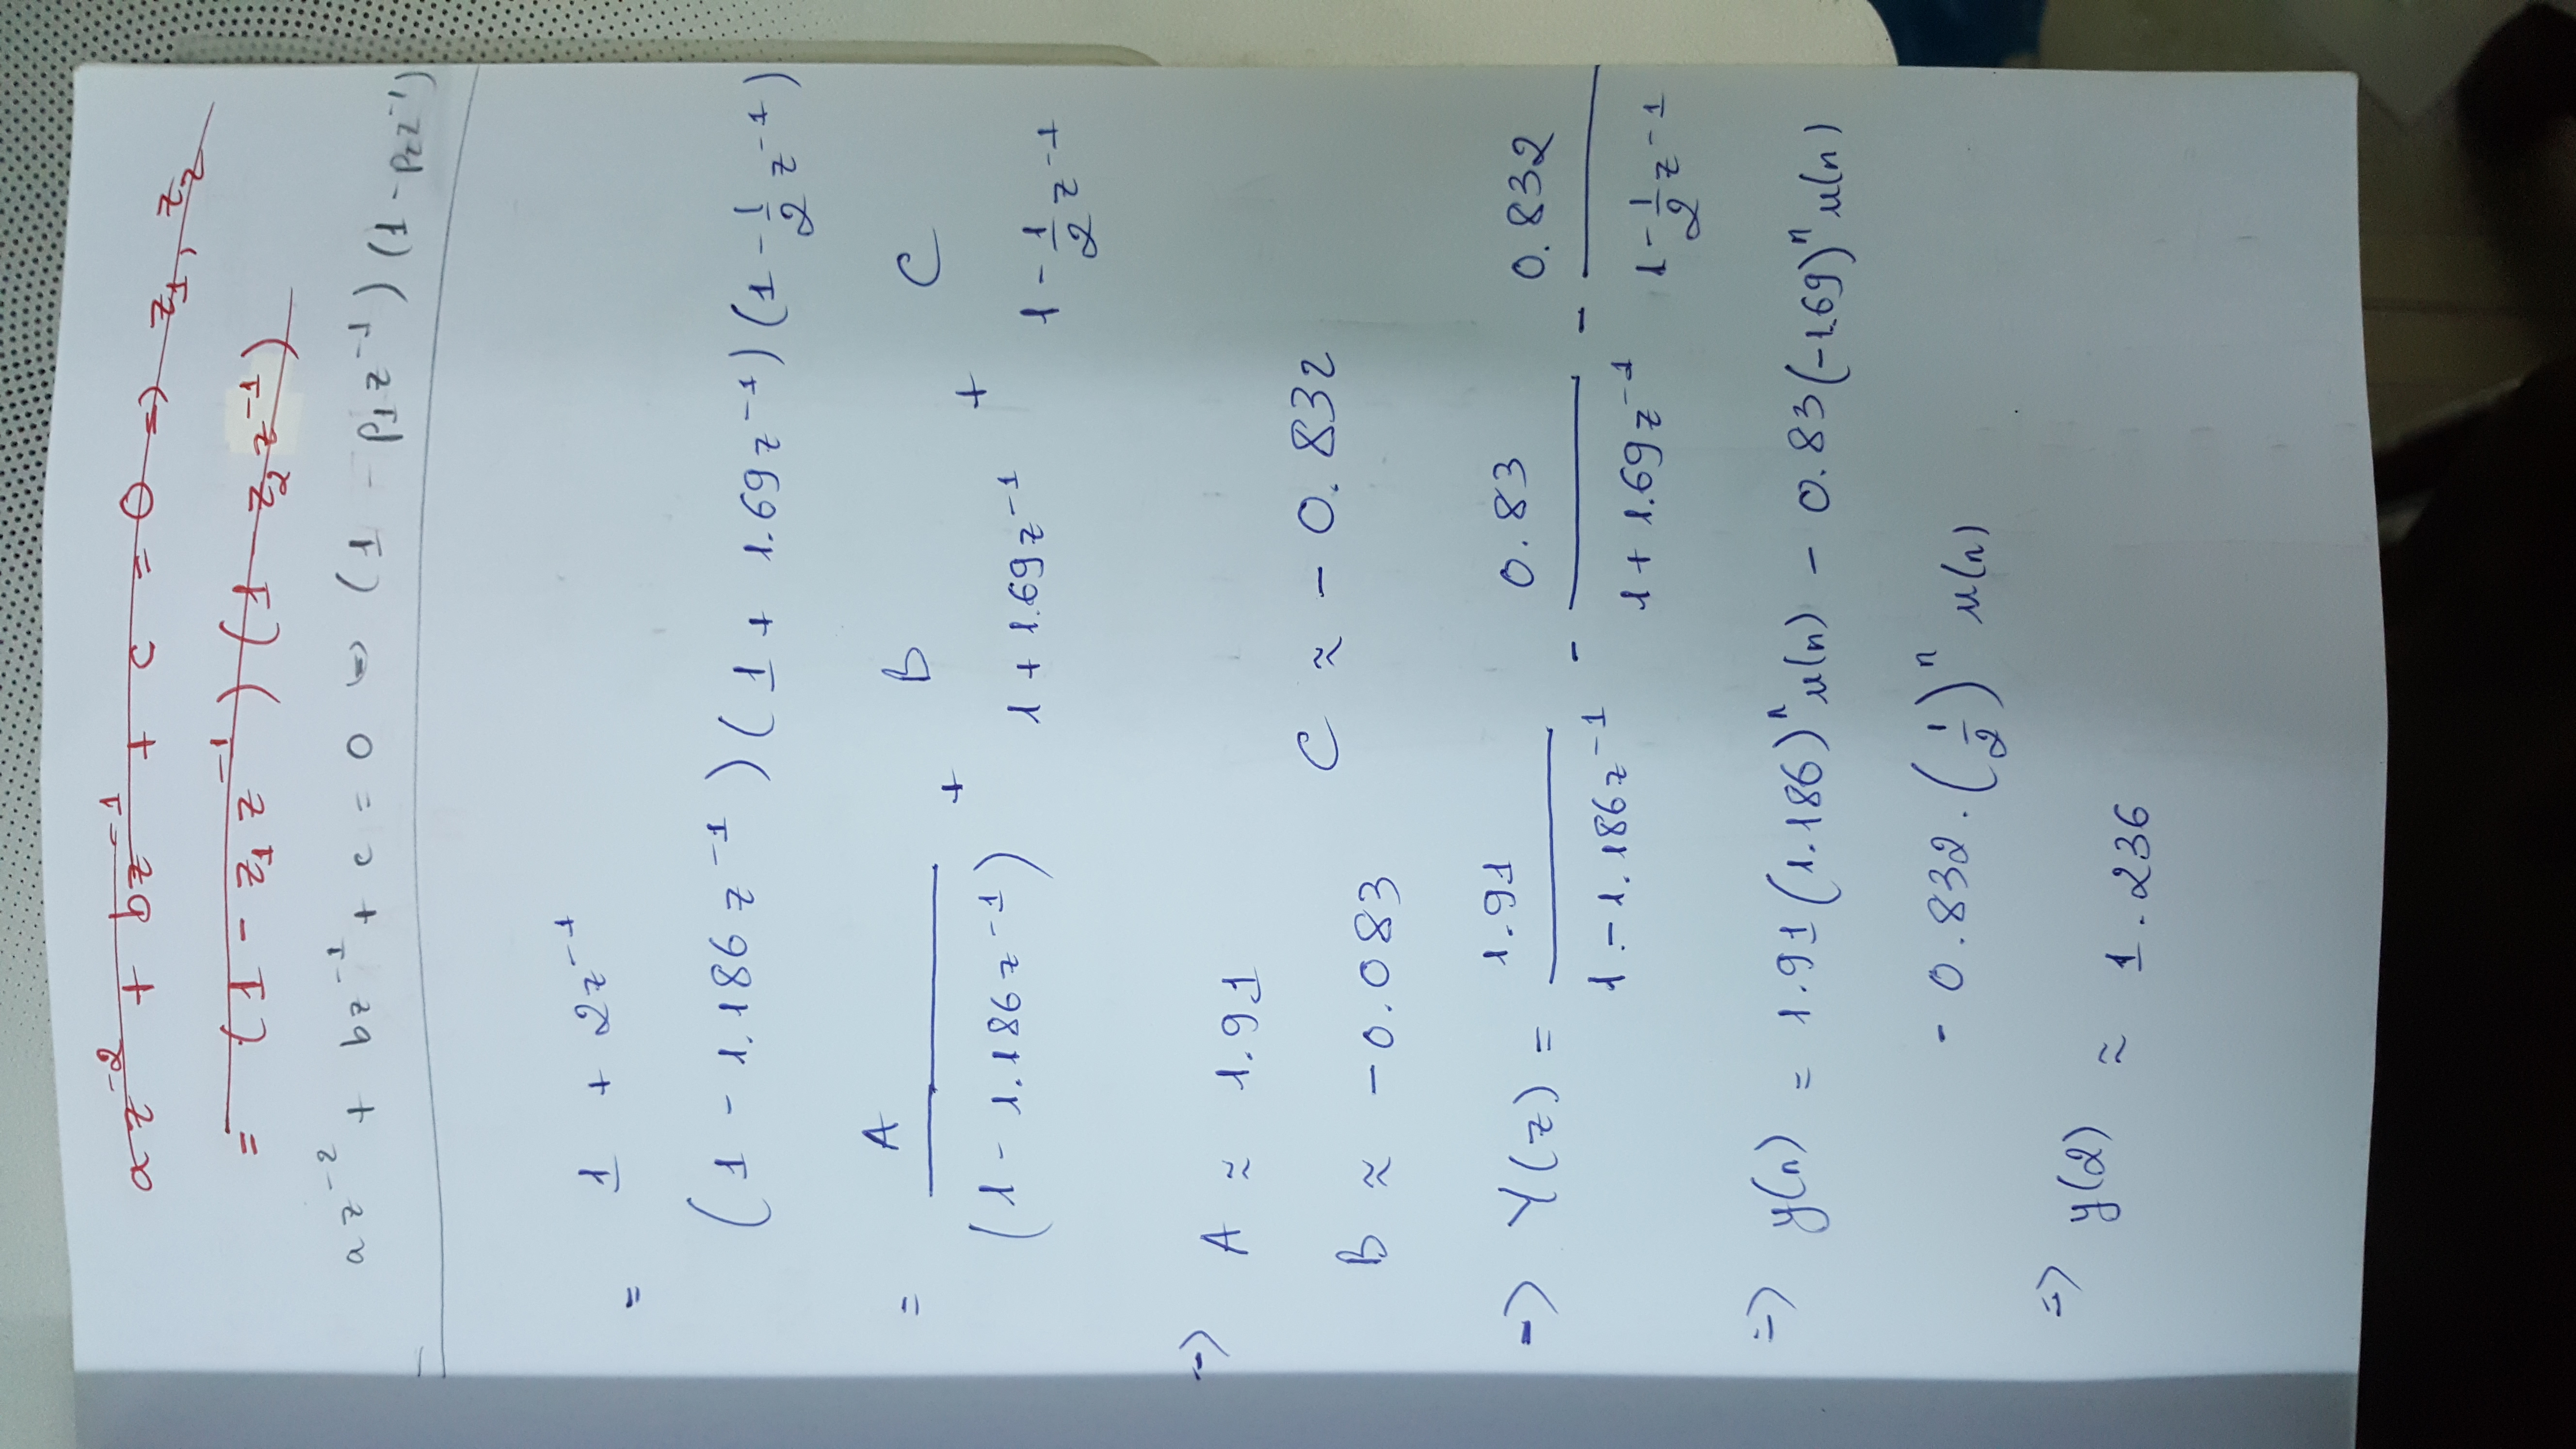 az⁻² + bz⁻¹ + c = 0 => z₁, z₂
= (1 - z₁z⁻¹)(1 - z₂z⁻¹)
az⁻² + bz⁻¹ + c = 0 => (1 - p₁z⁻¹)(1 - p₂z⁻¹)
= 1 + 2z⁻¹
(1 - 1.186z⁻¹)(1 + 1.69z⁻¹)(1 - 1/2 z⁻¹)
= A / (1 - 1.186z⁻¹) + B / 1 + 1.69z⁻¹ + C / 1 - 1/2 z⁻¹
=> A ≈ 1.91
C ≈ - 0.832
B ≈ -0.083
=> Y(z) = 1.91 / 1 - 1.186z⁻¹ - 0.83 / 1 + 1.69z⁻¹ - 0.832 / 1 - 1/2 z⁻¹
=> y(n) = 1.91(1.186)ⁿu(n) - 0.83(-1.69)ⁿu(n)
- 0.832.(1/2)ⁿ u(n)
=> y(2) ≈ 1.236